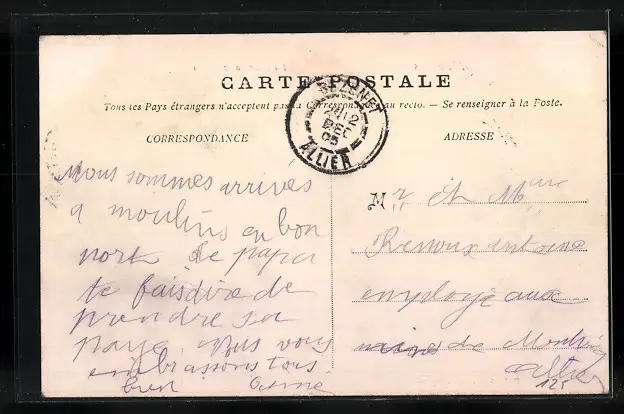 CARTE POSTALE
Tous les Pays étrangers n'acceptent pas la Correspondance au recto. — Se renseigner à la Poste.
CORRESPONDANCE
ADRESSE
12
DEC
05
ALLIER
Nous sommes arrivés
a moulins en bon
port le papa
te fais dire de
prendre sa
paye. Nous vous
embrassons tous
bien
Mr et Mme
Renoux antoine
employé aux
mines de
Allier
125